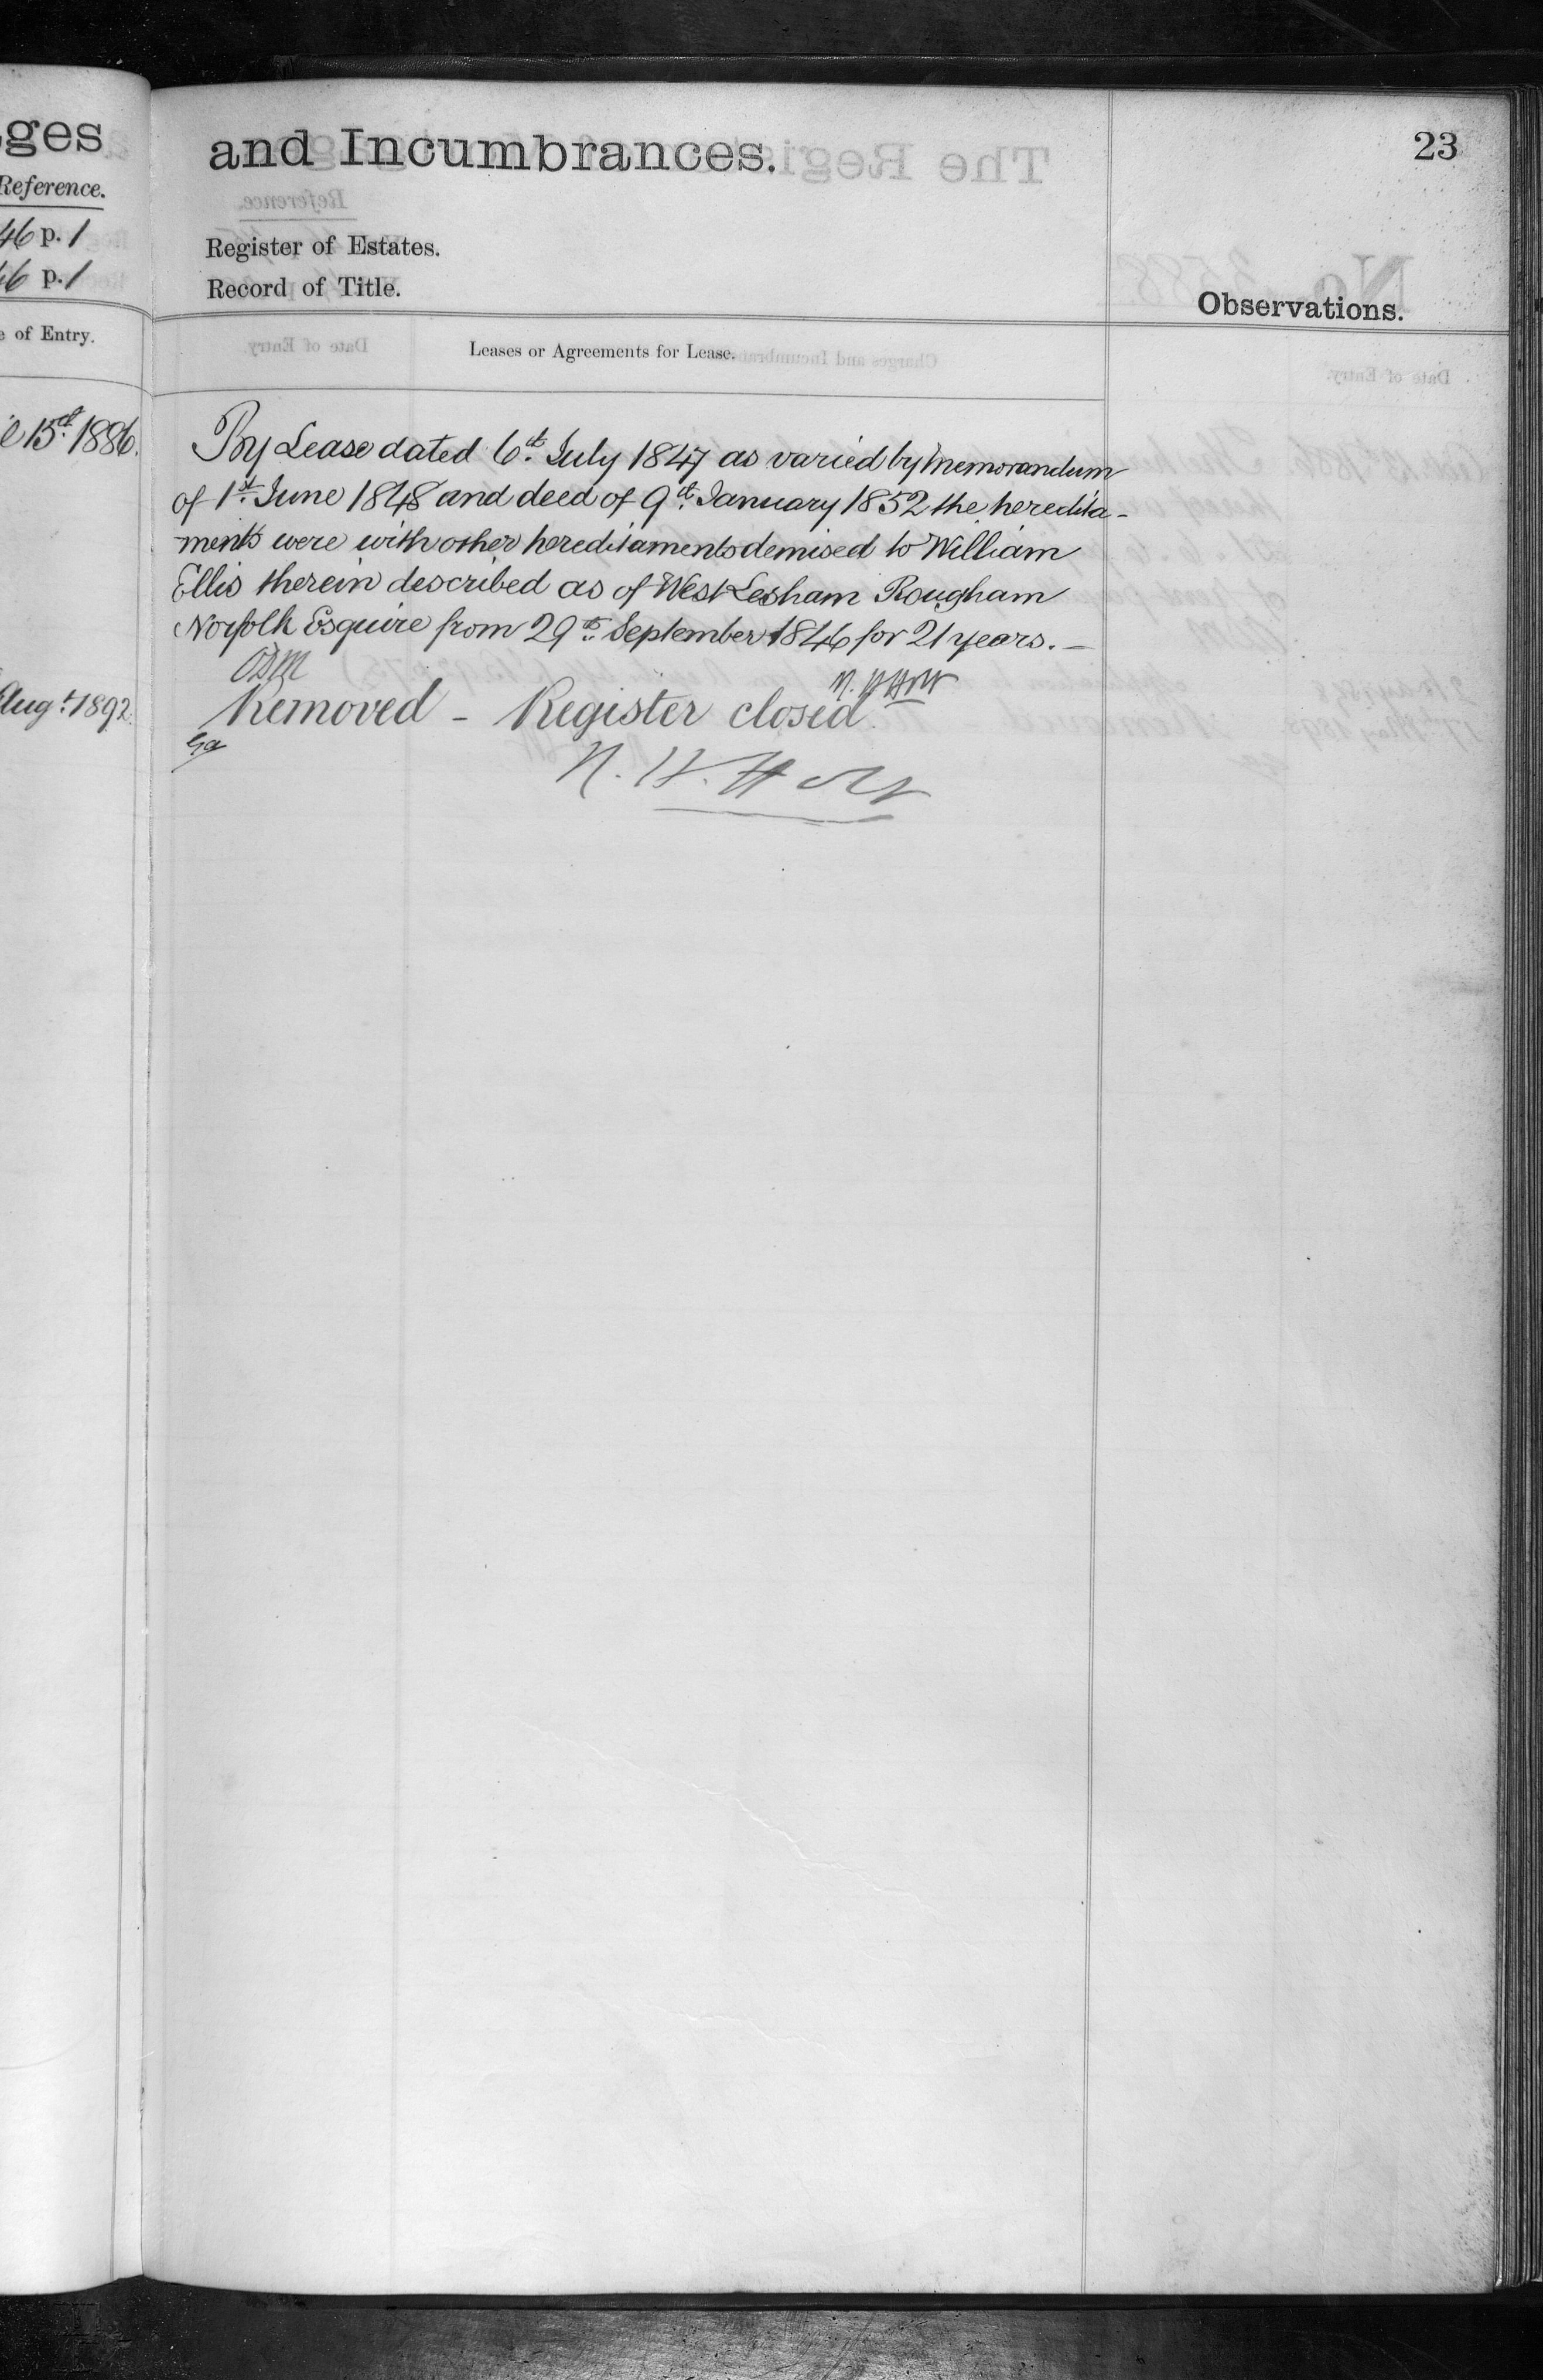 ges
and Incumbrances.
23
Reference.
46 p. 1
Register of Estates.
46 p. 1
Record of Title.
Observations.
of Entry.
Leases or Agreements for Lease.
15th. 1886.
By Lease dated 6th. July 1847 as varied by memorandum
of 1st. June 1848 and deed of 9th. January 1852 the heredita-
ments were with other hereditaments demised to William
Ellis therein described as of West Lesham Rougham
Norfolk Esquire from 29th. September 1846 for 21 years. —
Augt. 1892.
Removed - Register closed.